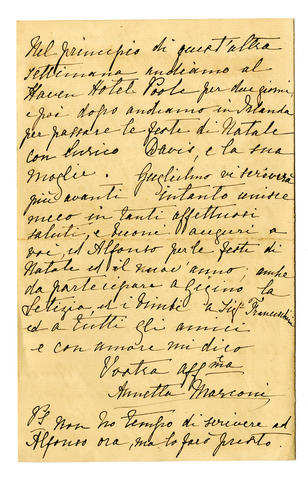 Nel principio di quest'altra
settimana andiamo al
Haven Hotel Poole per due giorni,
e poi dopo andiamo in Irlanda
per passare le feste di Natale
con Enrico Davis, e la sua
moglie. Guglielmo vi scriverà
più avanti Intanto unisce
meco in tanti affettuosi
saluti, e buoni auguri a
voi, ed Alfonso per le feste di
Natale ed il nuovo anno, anche
da partecipare a Gegino la
Letizia, ed i bimbi a Sig.
ed a tutti gli amici
e con amore mi dico
Vostra affma
Annetta Marconi
PS Non ho tempo di scrivere ad
Alfonso ora, ma lo farò presto.